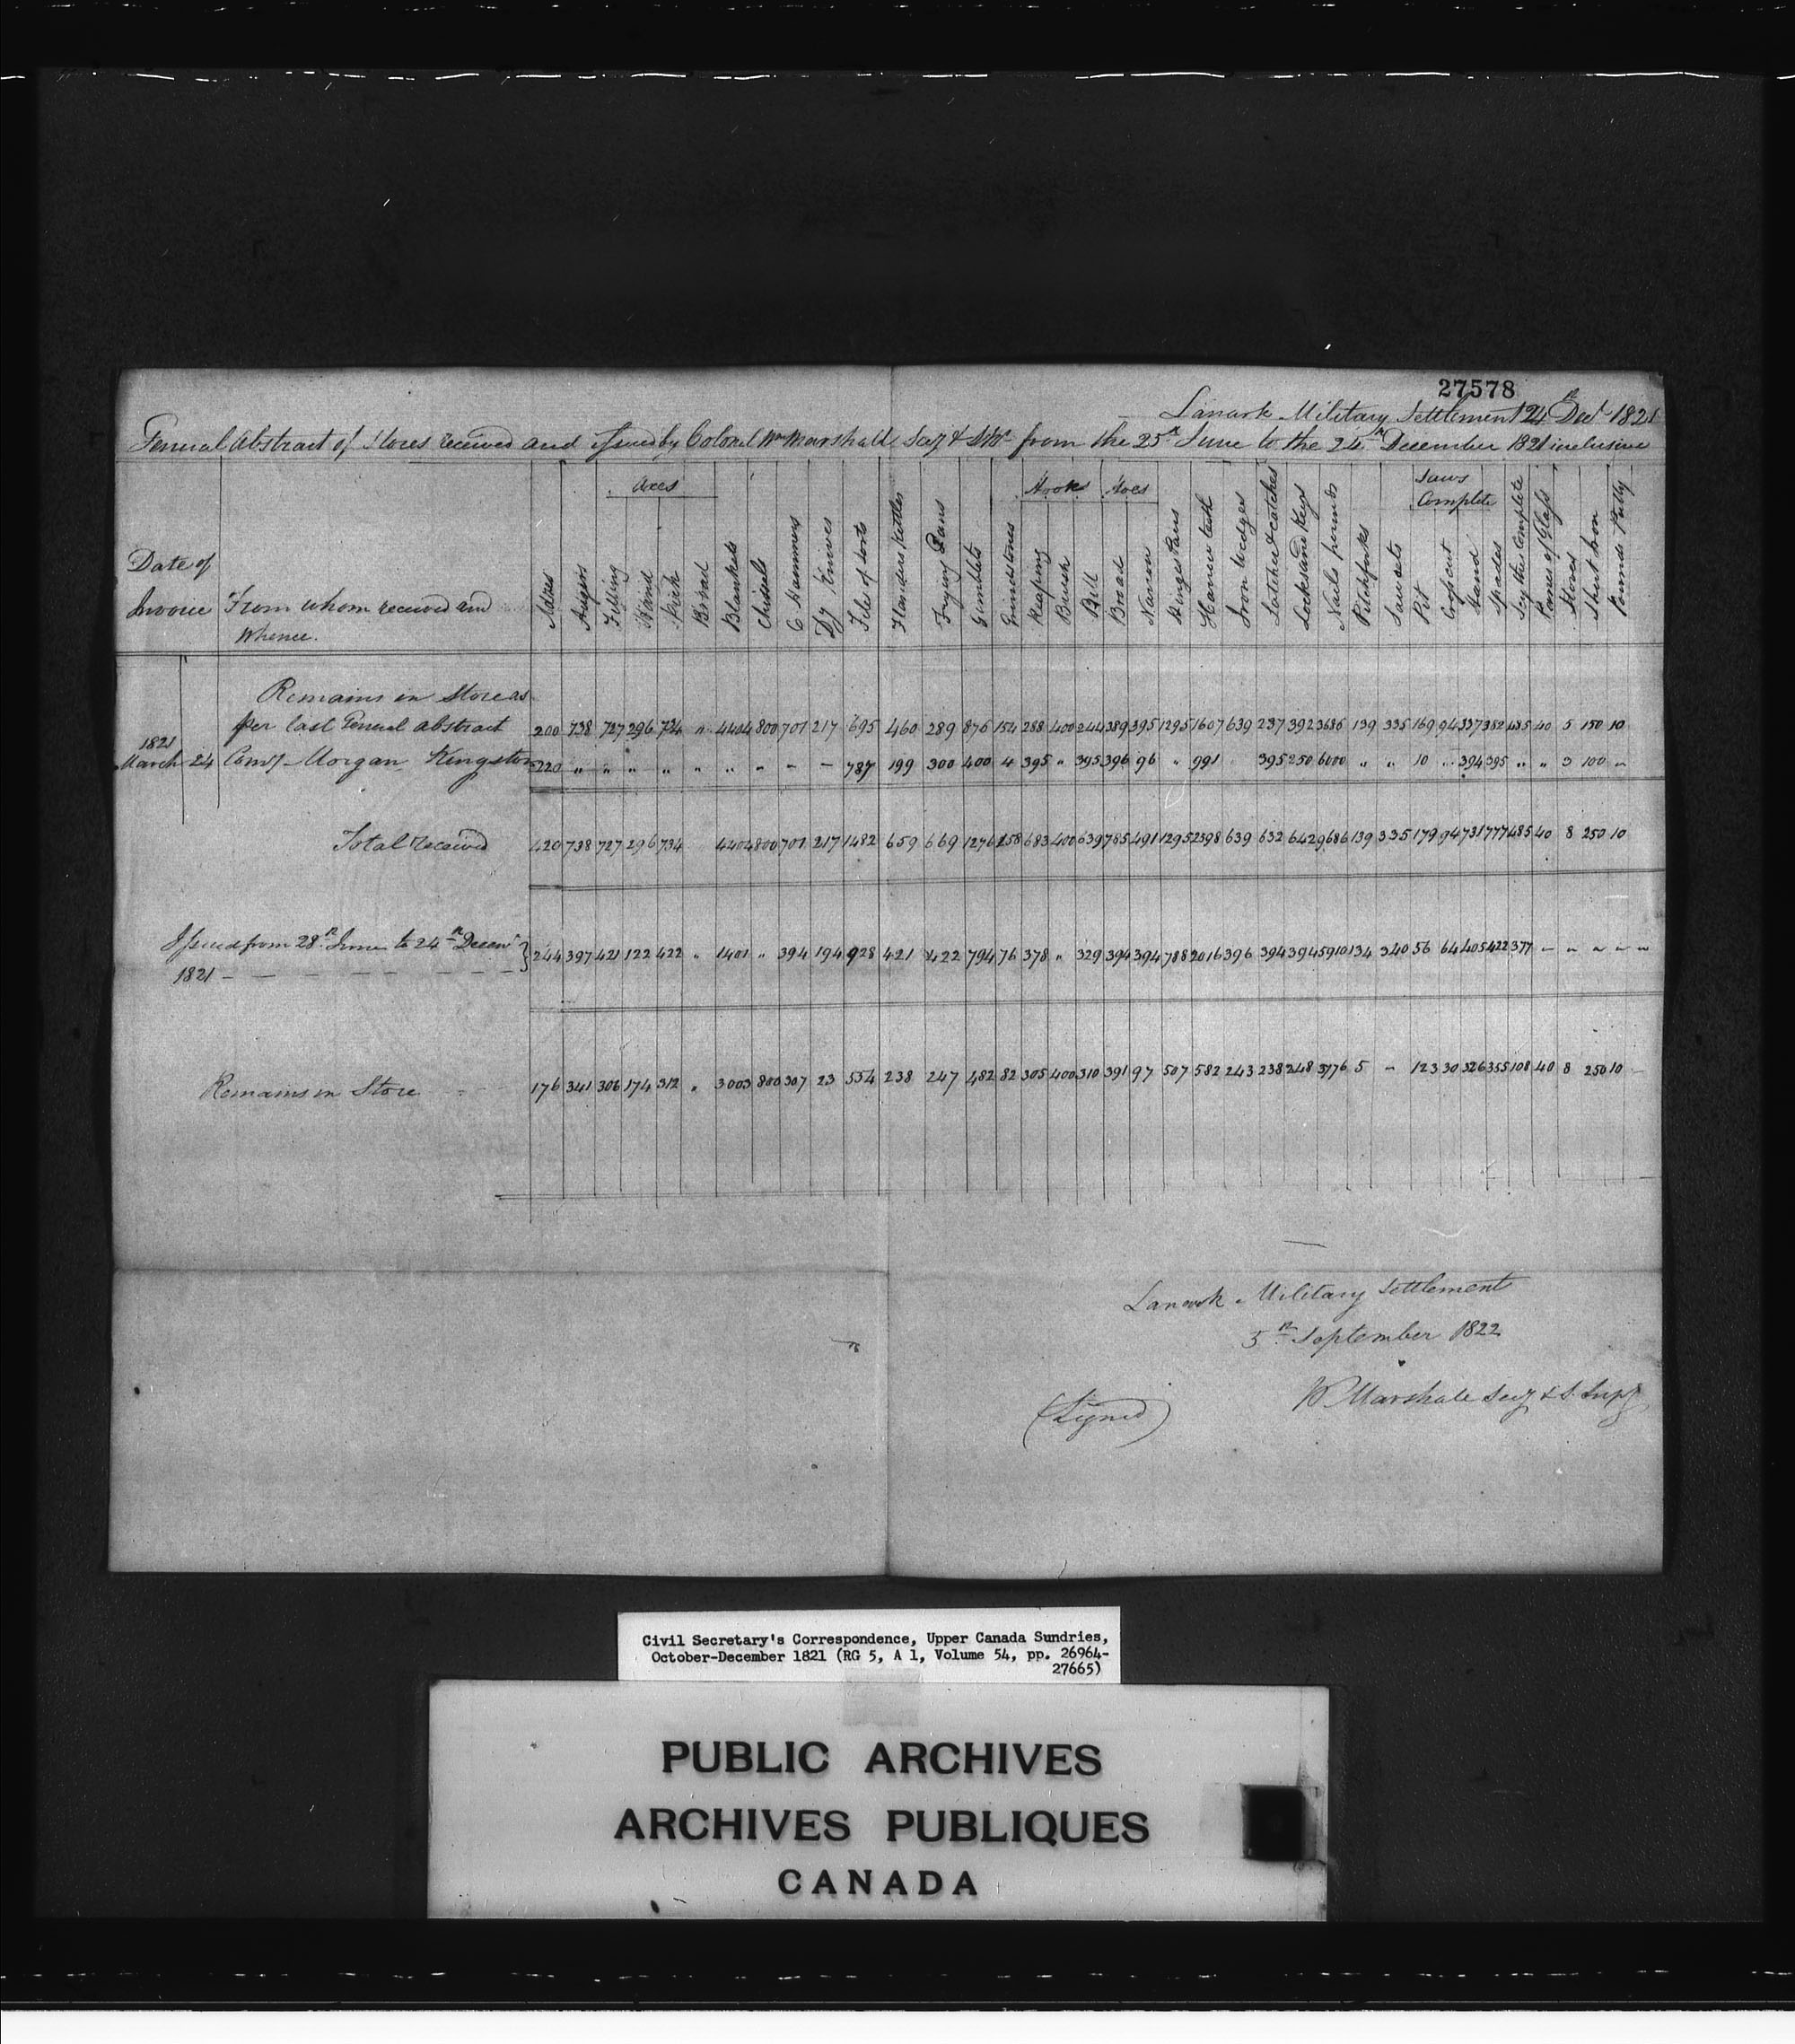 27578
Lanark Military Settlement 24th Decr 1821
General Abstract of Stores received and issued by Colonel Wm Marshall Secy & from the 25th June to the 24th December 1821 inclusive
Date of Invoice
From whom received and whence.
Adzes
Augers
Axes
Felling
Hand
Pick
Broad
Blankets
Chissels
C Hammers
Dg Knives
Files of sorts
Flanders Kettles
Frying Pans
Gimblets
Grindstones
Hooks
Reaping
Brush
Bill
Hoes
Broad
Narrow
Hinges Pairs
Harrow teeth
Iron Wedges
Latches & catches
Locks and Keys
Nails pounds
Pitchforks
Saw sets
Saws Complete
Pit
Crosscut
Hand
Spades
Scythes Complete
Panes of Glass
Stoves
Sheet Iron
Pounds Putty
Remains in Store as
per last General abstract 200 738 727 296 734 " 4404 800 701 217 695 460 289 876 154 288 400 244 389 395 1295 1607 639 237 392 3686 139 335 169 94 337 382 485 40 5 150 10
1821
March 24 Comy Morgan Kingston 220 " " " " " " " - - 787 199 300 400 4 395 " 395 396 96 " 991 395 250 6000 " " 10 " 394 395 " " 3 100 "
Total received 420 738 727 296 734 4404 800 701 217 1482 659 669 1276 158 683 400 639 785 491 1295 2598 639 632 642 9686 139 335 179 94 731 777 485 40 8 250 10
Issued from 28th June to 24th Decemr
1821 - - - 244 397 421 122 422 " 1401 " 394 194 928 421 422 794 76 378 " 329 394 394 788 2016 396 394 394 5910 134 340 56 64 405 422 377 - - - - -
Remains in Store 176 341 306 174 312 " 3003 800 307 23 554 238 247 482 82 305 400 310 391 97 507 582 243 238 248 3776 5 - 123 30 326 355 108 40 8 250 10
Lanark Military Settlement
5th September 1822
(Signed) W Marshall Secy & S. Supt
Civil Secretary's Correspondence, Upper Canada Sundries,
October-December 1821 (RG 5, A 1, Volume 54, pp. 26964-
27665)
PUBLIC ARCHIVES
ARCHIVES PUBLIQUES
CANADA